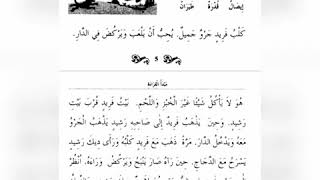 إيصَال قُدْرَة طَيَرَان
كَلْبُ فَرِيدٍ جَرْوٌ جَمِيلٌ. يُحِبُّ أَنْ يَلْعَبَ وَيَرْكُضَ فِي الدَّارِ.
5
مَبْدَأُ القِرَاءَة
هُوَ لَا يَأْكُلُ شَيْئًا غَيْرَ الْخُبْزِ وَاللَّحْمِ. بَيْتُ فَرِيدٍ قُرْبَ بَيْتِ
رَشِيدٍ. وَحِينَ يَذْهَبُ فَرِيدٌ إِلَى صَاحِبِهِ رَشِيدٍ يَذْهَبُ الْجَرْوُ
مَعَهُ وَيَدْخُلُ الدَّارَ. مَرَّةً ذَهَبَ مَعَ فَرِيدٍ كَلْبُهُ وَرَأَى دِيكَ رَشِيدٍ
يَسْرَحُ مَعَ الدَّجَاجِ. حِينَ رَآهُ صَارَ يَنْبَحُ وَيَرْكُضُ وَرَاءَهُ. أُنْظُرْ